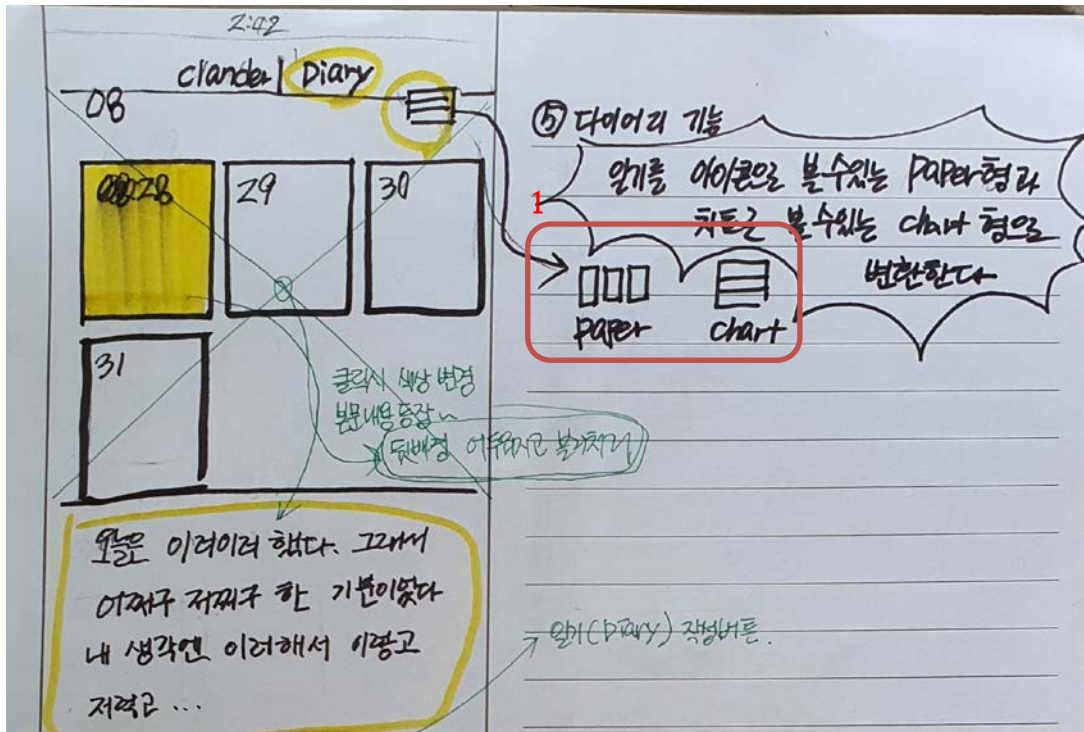 2:42
Clander | Diary
08
28
29
30
31
클릭시 색상 변경
본문내용 등장~
뒷배경 어두워지고 블러처리
오늘은 이러이러 했다. 그래서
어쩌구 저쩌구 한 기분이었다
내 생각엔 이러해서 이렇고
저렇고 ...
⑤ 다이어리 기능
일기를 아이콘으로 볼수있는 paper형과
차트로 볼수있는 chart 형으로
변환한다
1
paper
chart
일기(Diary) 작성버튼.